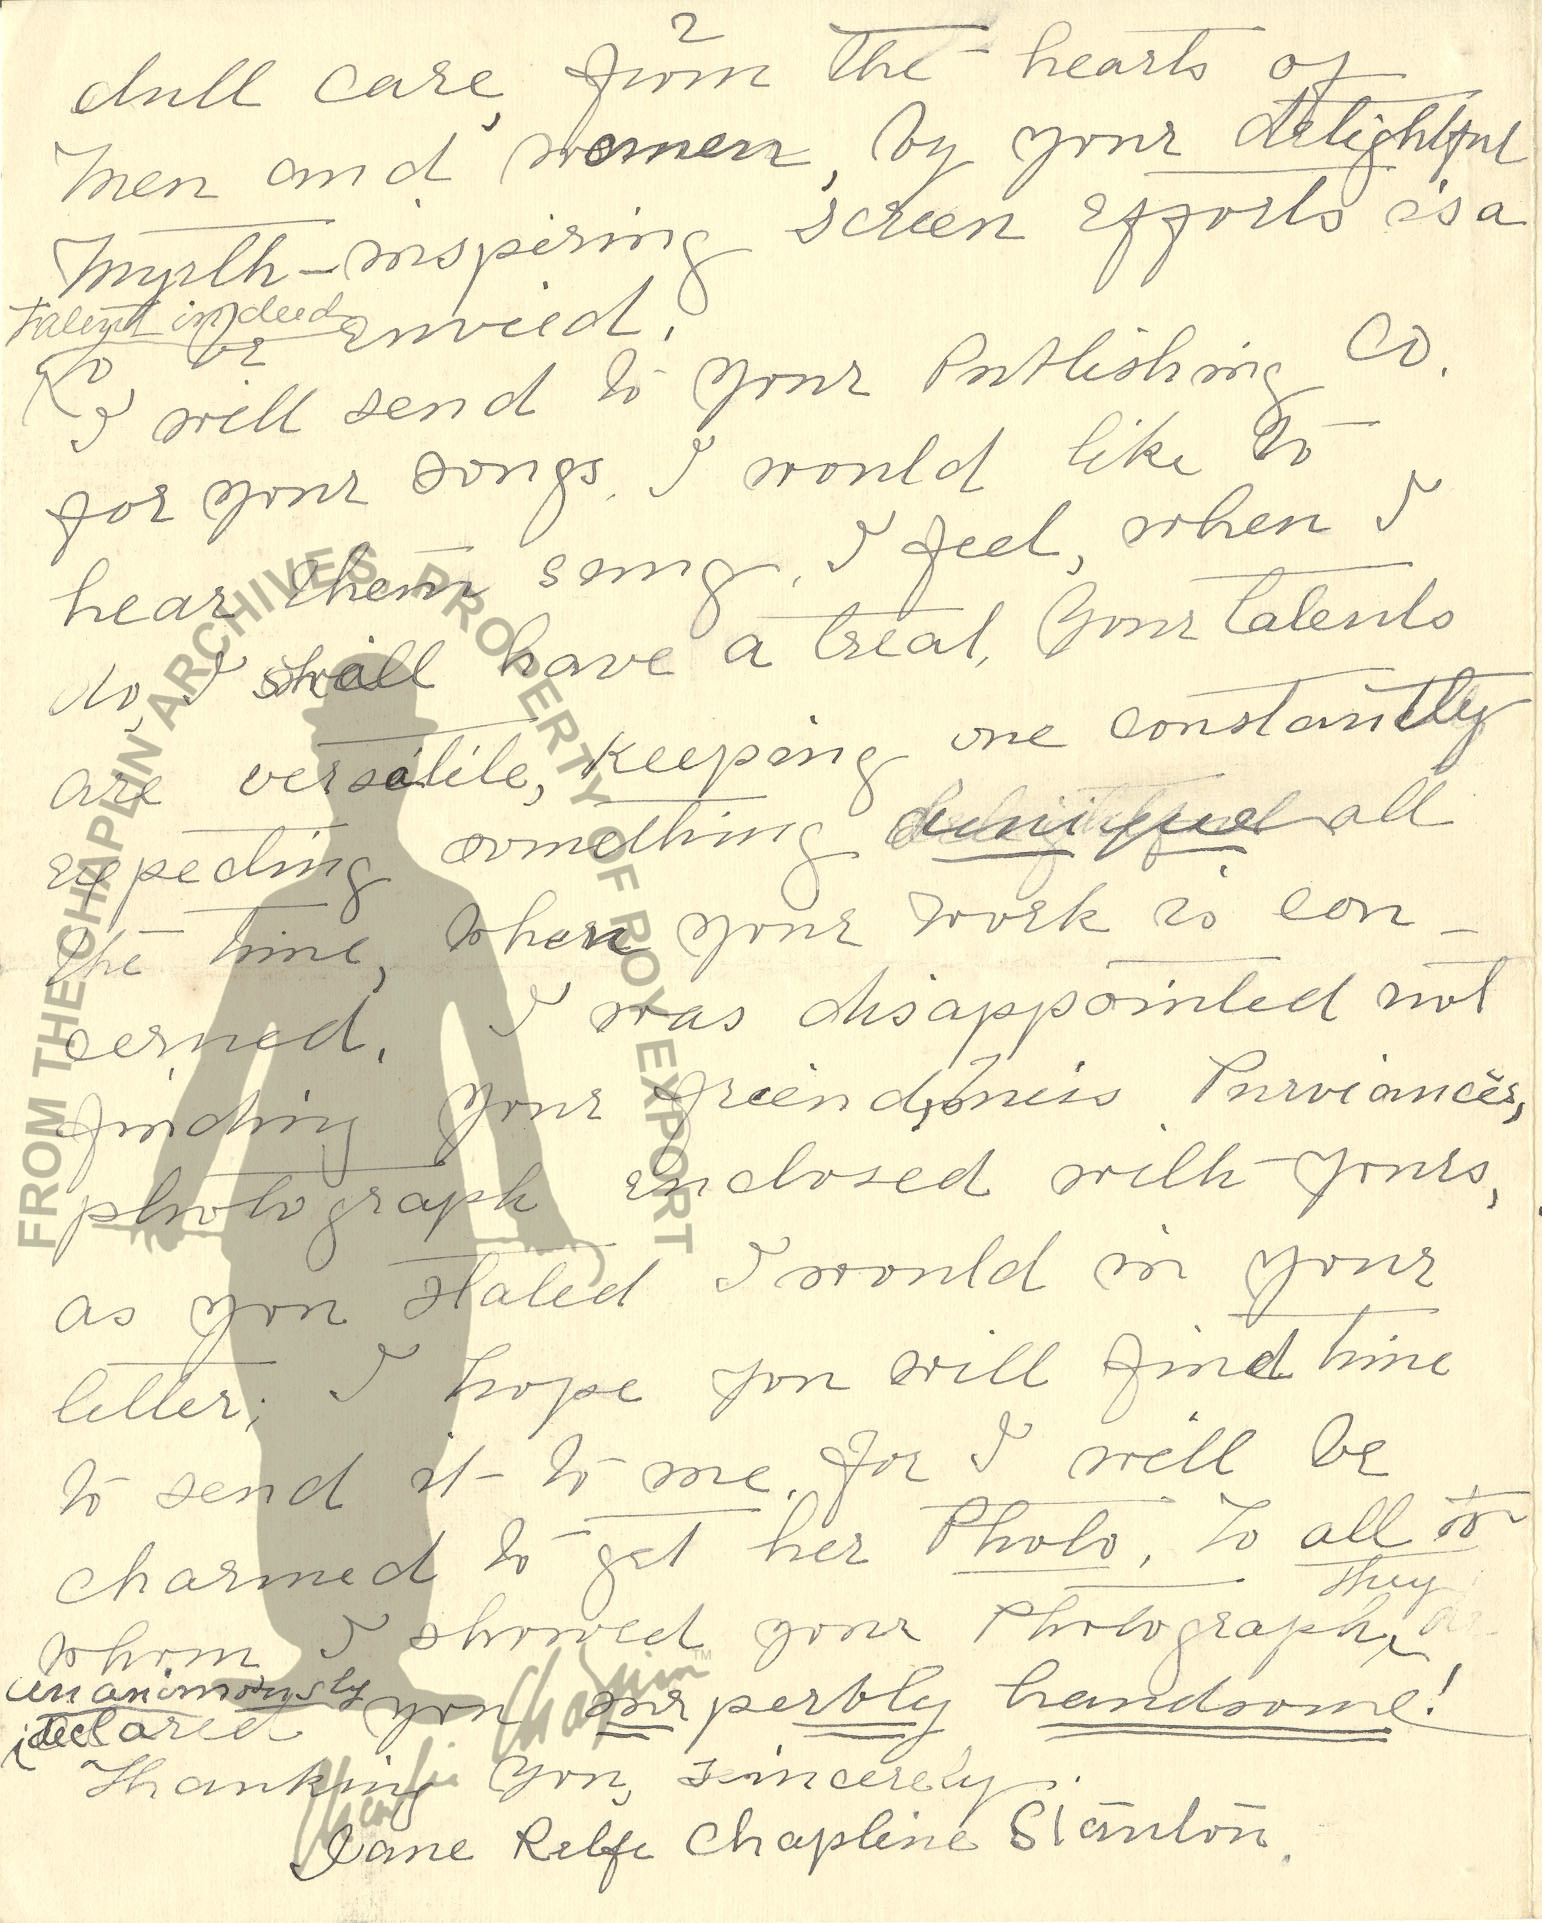 2
dull care, from the hearts of
men and women, by your delightful
myrth-inspiring screen efforts is a
talent indeed
to be envied.
I will send to your Publishing Co.
for your songs. I would like to
hear them sung. I feel, when I
do, I shall have a treat. Your talents
are versitile, keeping one constantly
expecting something all
the time, when your work is con-
cerned. I was disappointed not
finding your friend, Miss Purviances,
photograph enclosed with yours,
as you stated I would in your
letter; I hope you will find time
to send it to me, for I will be
charmed to get her Photo. To all to
they
whom I showed your Photograph,
unanimously
declared you surperbly handsome!
Thanking you, sincerely.
Jane Relfe Chapline Stanton.
FROM THE CHAPLIN ARCHIVES PROPERTY OF ROY EXPORT
Charlie Chaplin™